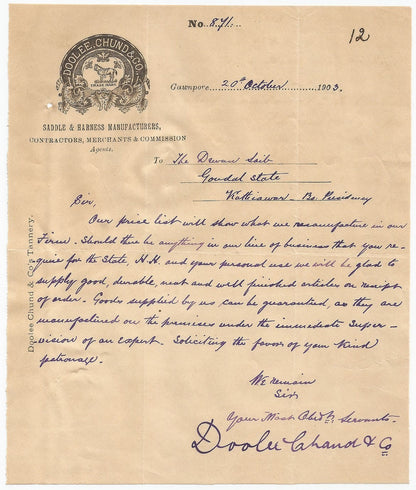 No. 871.
12
DOOLEE CHUND & CO
TRADE MARK
Cawnpore 20th October 1903.
SADDLE & HARNESS MANUFACTURERS,
CONTRACTORS, MERCHANTS & COMMISSION
Agents.
To The Dewan Saib
Gondal State
Kattiawar - Bo. Presidency
Sir,
Our price list will show what we manufacture in our
Firm. Should there be anything in our line of business that you re-
quire for the State, H.H. and your personal use we will be glad to
supply good, durable, neat and well finished articles on receipt
of order. Goods supplied by us can be guarantied, as they are
manufactured on the premises under the immediate super-
vision of an expert. Soliciting the favor of your kind
patronage.
We remain
Sir
Your Most Obdt Servants
Doolee Chand & Co
Doolee Chund & Co's Tannery.